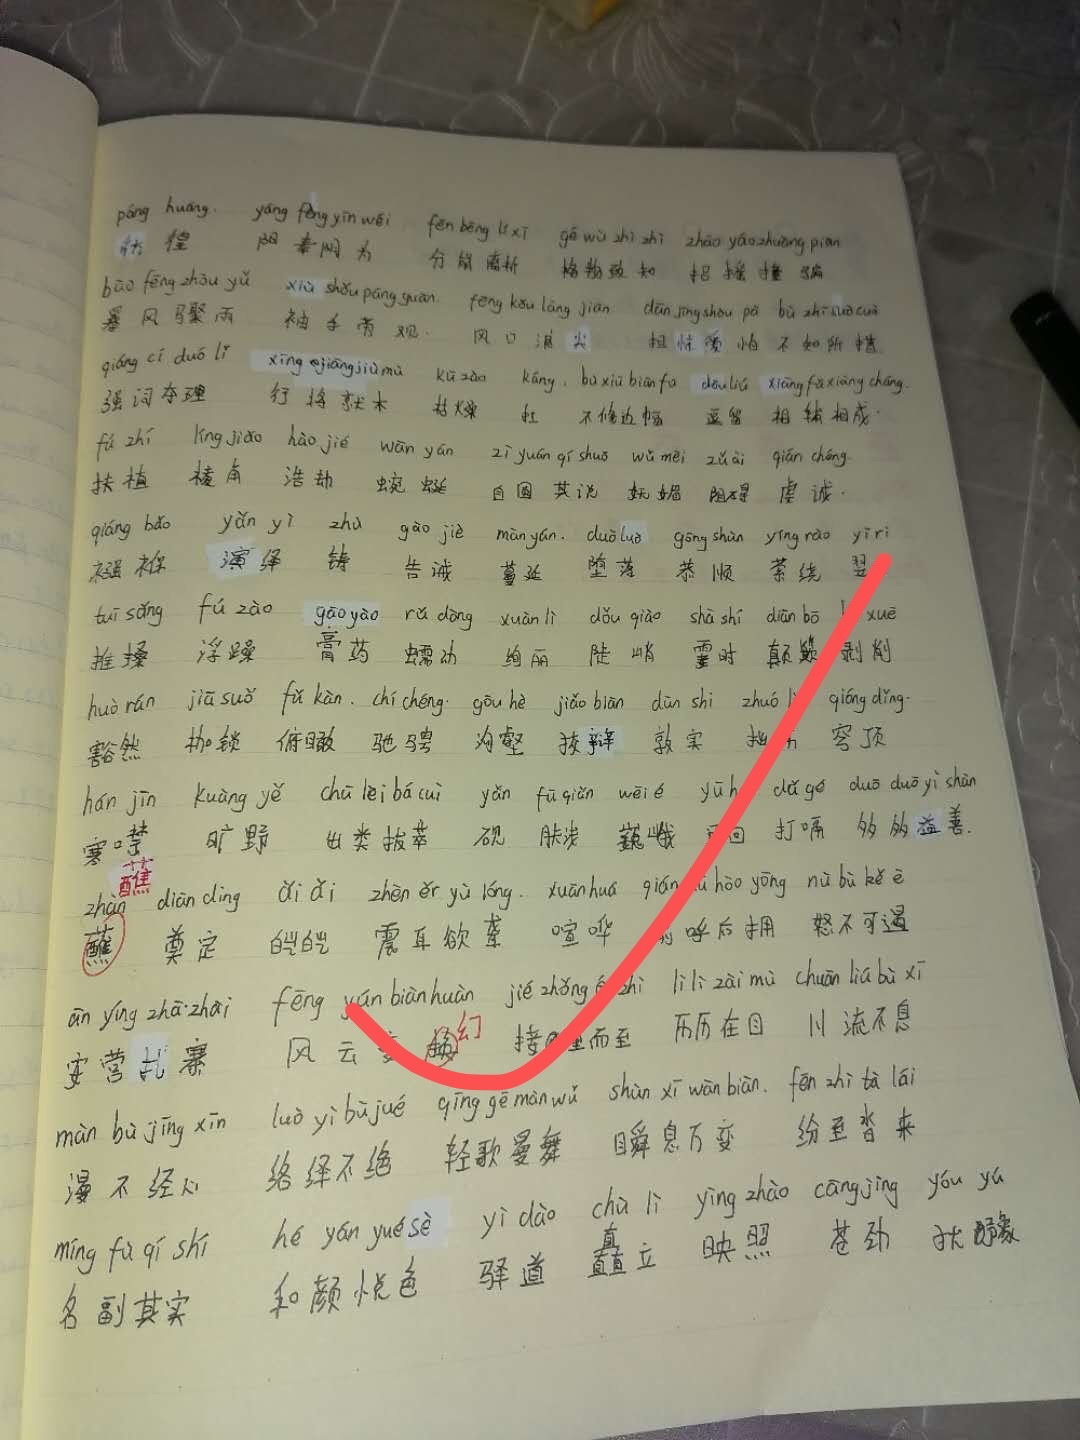 páng huáng. yáng fèng yīn wéi fēn bēng lí xī gé wù zhì zhī zhāo yáo zhuàng piàn
彷徨 阳奉阴为 分崩离析 格物致知 招摇撞骗
bào fēng zhòu yǔ xiù shǒu páng guān. fēng kǒu làng jiān dān jīng shòu pà bù zhī suǒ cuò
暴风骤雨 袖手旁观. 风口浪尖 担惊受怕 不知所措
qiǎng cí duó lǐ xíng jiāng jiù mù kū zào káng. bù xiū biān fú dòu liú xiāng fǔ xiāng chéng.
强词夺理 行将就木 枯燥 扛 不修边幅 逗留 相辅相成.
fú zhí líng jiǎo hào jié wān yán zì yuán qí shuō wǔ mèi zǔ ài qián chéng.
扶植 棱角 浩劫 蜿蜒 自圆其说 妩媚 阻碍 虔诚.
qiǎng bǎo yǎn yì zhù gào jiè màn yán. duò luò gōng shùn yíng rào yì rì
襁褓 演绎 铸 告诫 蔓延 堕落 恭顺 萦绕 翌
tuī sǎng fú zào gāo yào rú dòng xuàn lì dǒu qiào shà shí diān bǒ xuē
推搡 浮躁 膏药 蠕动 绚丽 陡峭 霎时 颠簸 剥削
huò rán jiā suǒ fǔ kàn. chí chěng. gōu hè jiǎo biàn dūn shi zhuó l qióng dǐng.
豁然 枷锁 俯瞰 驰骋 沟壑 狡辩 敦实 拙 穹顶
hán jīn kuàng yě chū lèi bá cuì yàn fū qiǎn wēi é yū h dǎ gé duō duō yì shàn
寒噤 旷野 出类拔萃 砚 肤浅 巍峨 迂回 打嗝 多多益善.
蘸
zhàn diàn dìng ái ái zhèn ěr yù lóng. xuān huá qián hū hòo yōng nù bù kě è
蘸 奠定 皑皑 震耳欲聋 喧哗 呼后拥 怒不可遏
ān yíng zhā zhài fēng yún biàn huàn jiē zhǒng ér zhì lì lì zài mù chuān liú bù xī
安营扎寨 风云变 幻 接踵而至 历历在目 川流不息
màn bù jīng xīn luò yì bù jué qīng gē màn wǔ shùn xī wàn biàn. fēn zhì tà lái
漫不经心 络绎不绝 轻歌曼舞 瞬息万变 纷至沓来
míng fù qí shí hé yán yuè sè yì dào chù lì yìng zhào cāng jìng yóu yù
名副其实 和颜悦色 驿道 矗立 映照 苍劲 犹豫